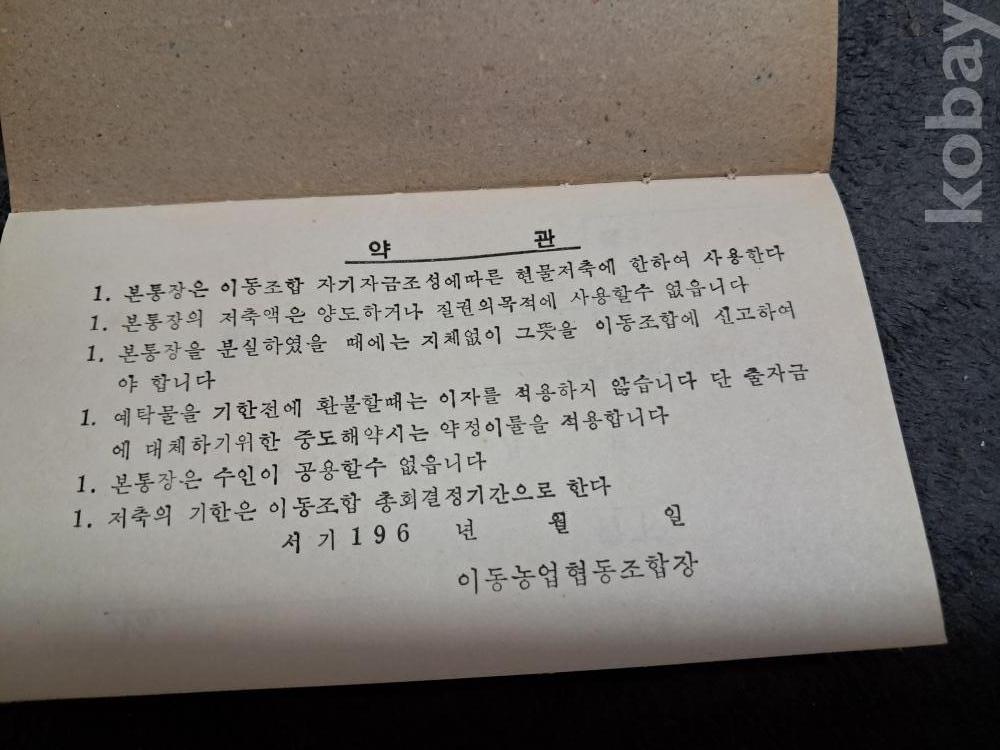 약 관
1. 본통장은 이동조합 자기자금조성에따른 현물저축에 한하여 사용한다
1. 본통장의 저축액은 양도하거나 질권의목적에 사용할수 없읍니다
1. 본통장을 분실하였을 때에는 지체없이 그뜻을 이동조합에 신고하여
야 합니다
1. 예탁물을 기한전에 환불할때는 이자를 적용하지 않습니다 단 출자금
에 대체하기위한 중도해약시는 약정이률을 적용합니다
1. 본통장은 수인이 공용할수 없읍니다
1. 저축의 기한은 이동조합 총회결정기간으로 한다
서기 196 년 월 일
이동농업협동조합장
kobay